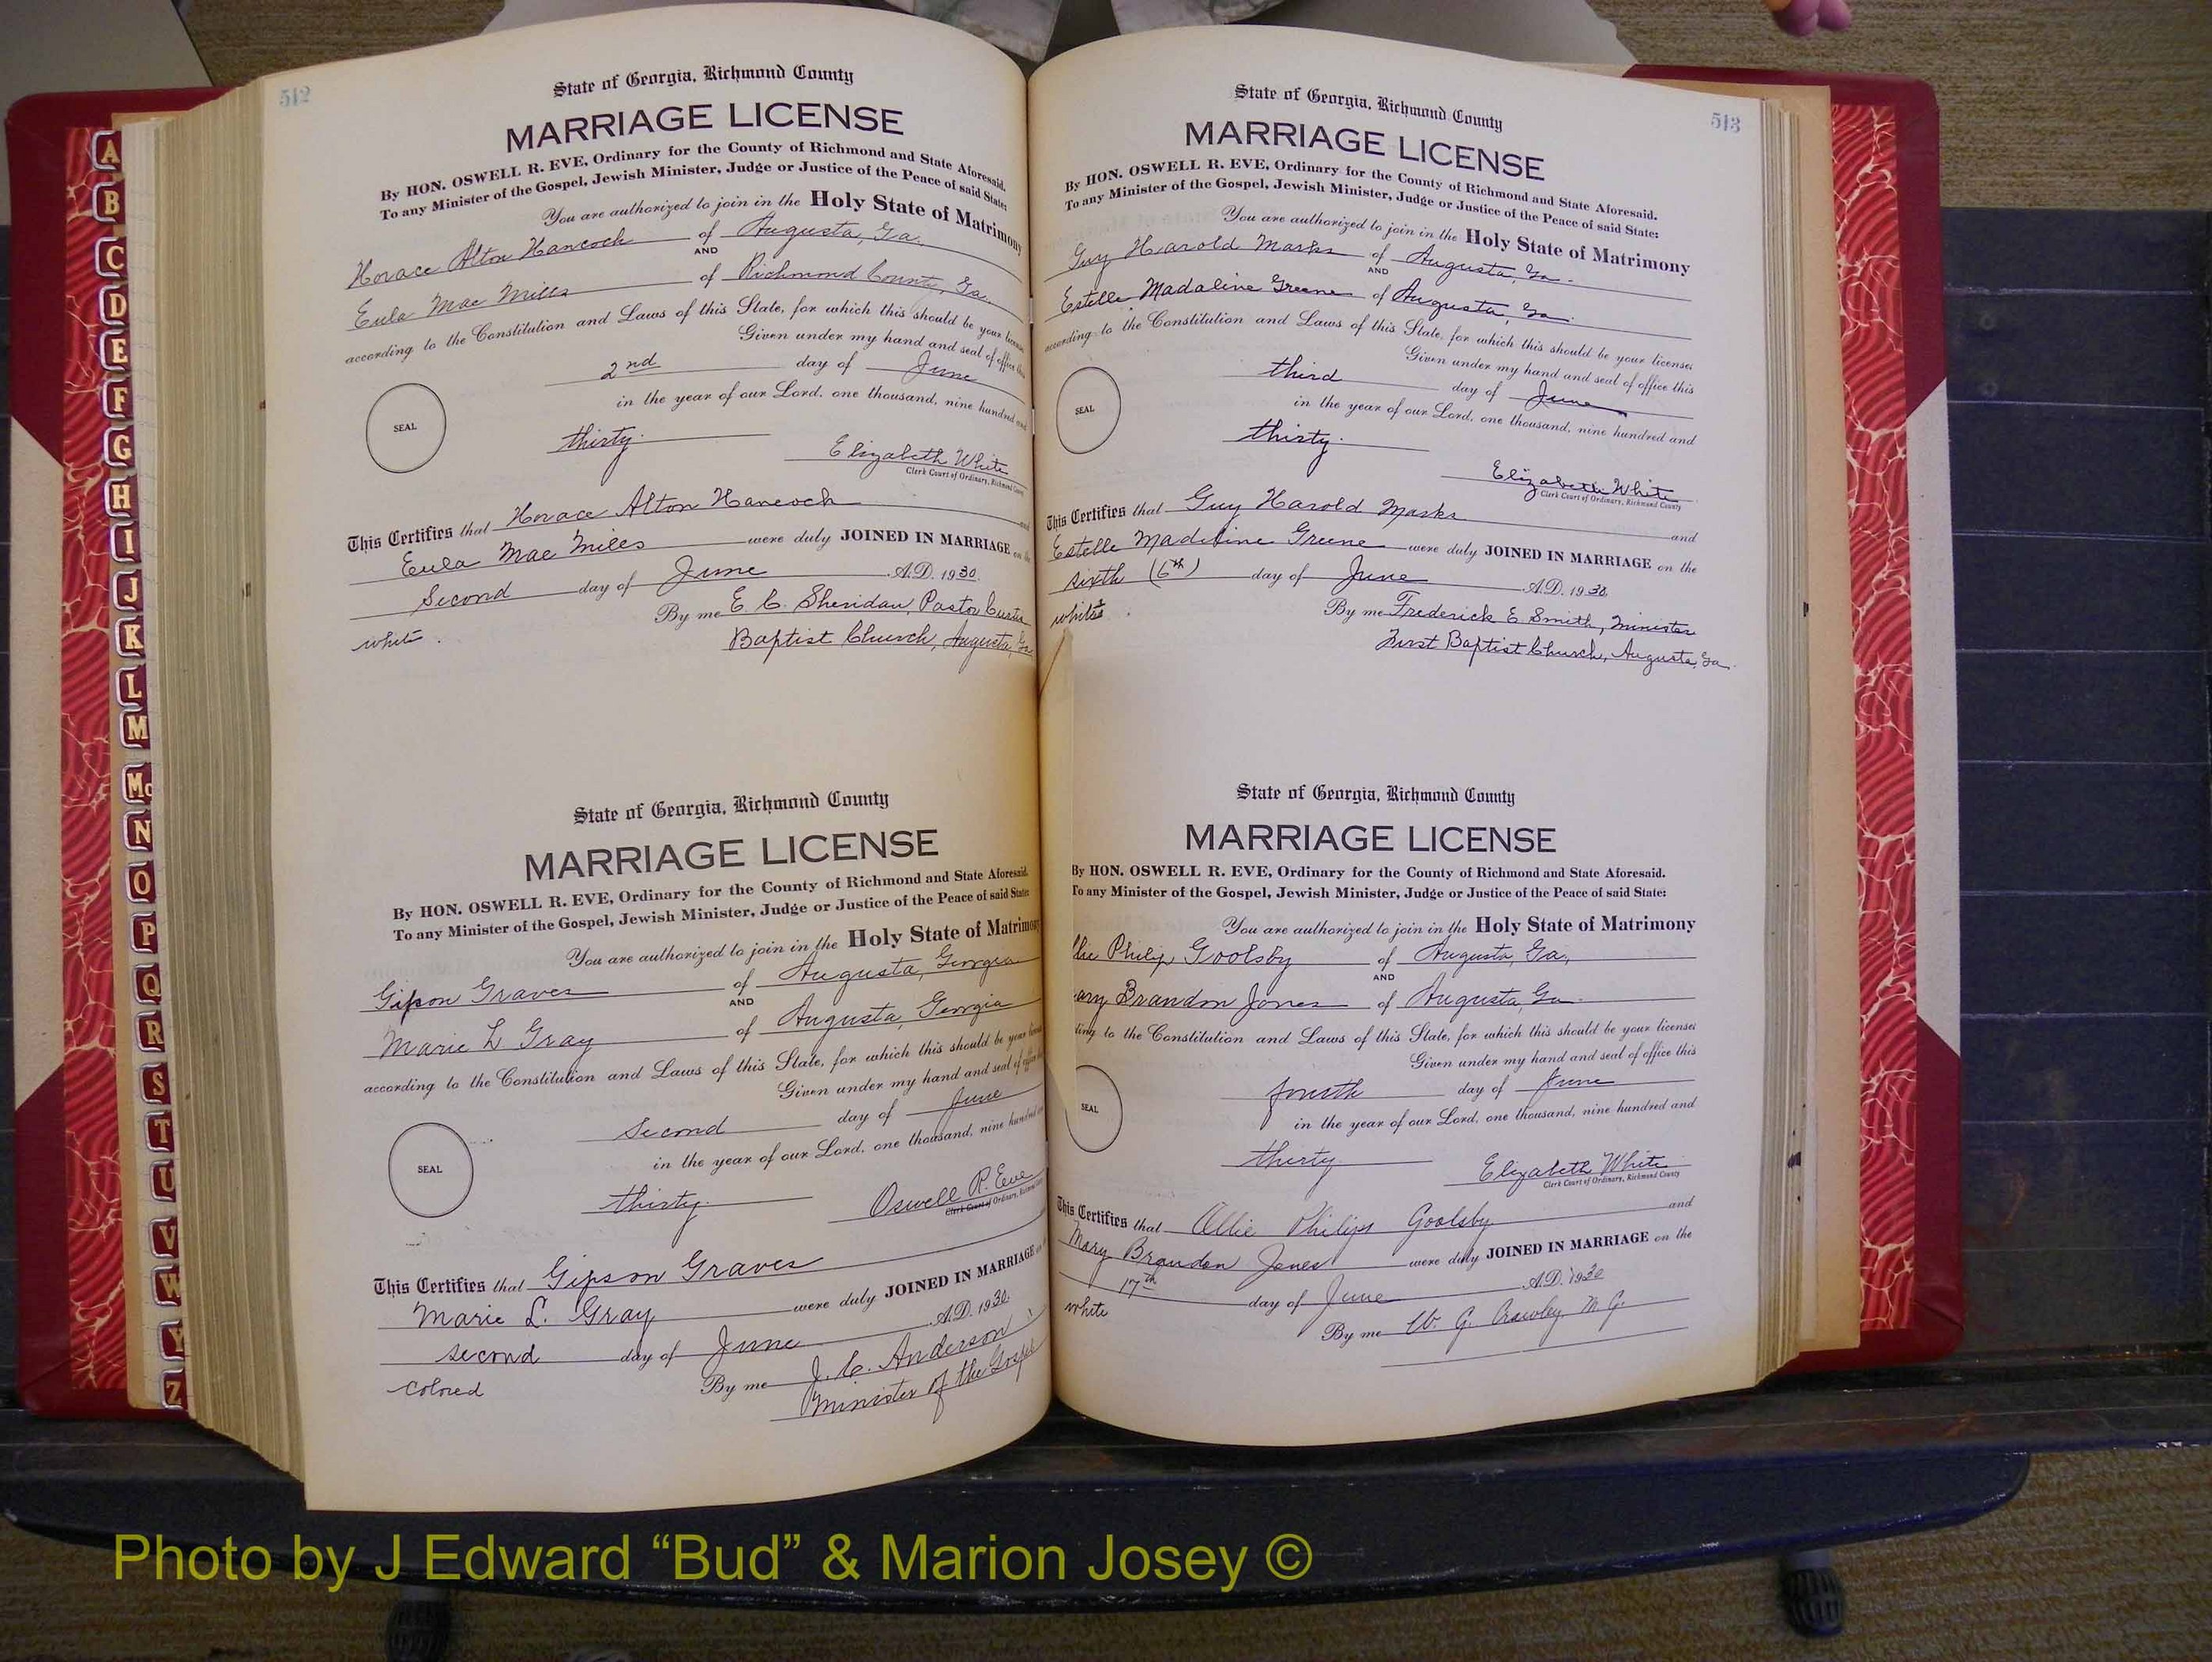 512
State of Georgia, Richmond County
MARRIAGE LICENSE
By HON. OSWELL R. EVE, Ordinary for the County of Richmond and State Aforesaid.
To any Minister of the Gospel, Jewish Minister, Judge or Justice of the Peace of said State:
You are authorized to join in the Holy State of Matrimony
Horace Alton Hancock of Augusta, Ga.
AND
Eula Mae Miles of Richmond County, Ga.
according to the Constitution and Laws of this State, for which this should be your license
Given under my hand and seal of office this
2nd day of June
in the year of our Lord, one thousand, nine hundred and
SEAL
thirty.
Elizabeth White
Clerk Court of Ordinary, Richmond County
This Certifies that Horace Alton Hancock and
Eula Mae Miles were duly JOINED IN MARRIAGE on the
Second day of June A.D. 1930.
By me E. C. Sheridan, Pastor Curtis
white.
Baptist Church, Augusta, Ga
State of Georgia, Richmond County
MARRIAGE LICENSE
By HON. OSWELL R. EVE, Ordinary for the County of Richmond and State Aforesaid.
To any Minister of the Gospel, Jewish Minister, Judge or Justice of the Peace of said State:
You are authorized to join in the Holy State of Matrimony
Gipson Graves of Augusta, Georgia
AND
Marie L Gray of Augusta, Georgia
according to the Constitution and Laws of this State, for which this should be your
Given under my hand and seal of office
Second day of June
in the year of our Lord, one thousand, nine hundred
SEAL
thirty.
Oswell R. Eve
Clerk Court of Ordinary, Richmond County
This Certifies that Gipson Graves
Marie L. Gray were duly JOINED IN MARRIAGE on
second day of June A.D. 1930.
colored
By me J. C. Anderson
Minister of the Gospel
513
State of Georgia, Richmond County
MARRIAGE LICENSE
By HON. OSWELL R. EVE, Ordinary for the County of Richmond and State Aforesaid.
To any Minister of the Gospel, Jewish Minister, Judge or Justice of the Peace of said State:
You are authorized to join in the Holy State of Matrimony
Guy Harold Marks of Augusta, Ga.
AND
Estelle Madaline Greene of Augusta, Ga.
according to the Constitution and Laws of this State, for which this should be your license;
Given under my hand and seal of office this
third day of June
in the year of our Lord, one thousand, nine hundred and
SEAL
thirty.
Elizabeth White
Clerk Court of Ordinary, Richmond County
This Certifies that Guy Harold Marks and
Estelle Madiline Greene were duly JOINED IN MARRIAGE on the
sixth (6th) day of June A.D. 1930.
By me Frederick E Smith, Minister
white
First Baptist Church, Augusta, Ga.
State of Georgia, Richmond County
MARRIAGE LICENSE
By HON. OSWELL R. EVE, Ordinary for the County of Richmond and State Aforesaid.
To any Minister of the Gospel, Jewish Minister, Judge or Justice of the Peace of said State:
You are authorized to join in the Holy State of Matrimony
llie Philip Goolsby of Augusta, Ga.,
AND
ary Brandon Jones of Augusta, Ga.
ding to the Constitution and Laws of this State, for which this should be your license;
Given under my hand and seal of office this
fourth day of June
in the year of our Lord, one thousand, nine hundred and
SEAL
thirty
Elizabeth White
Clerk Court of Ordinary, Richmond County
This Certifies that Ollie Philips Goolsby and
Mary Brandon Jones were duly JOINED IN MARRIAGE on the
17th day of June A.D. 1930
white
By me W. G. Crawley M. G.
A
B
C
D
E
F
G
H
I
J
K
L
M
Mc
N
O
P
Q
R
S
T
U
V
W
Y
Z
Photo by J Edward “Bud” & Marion Josey ©